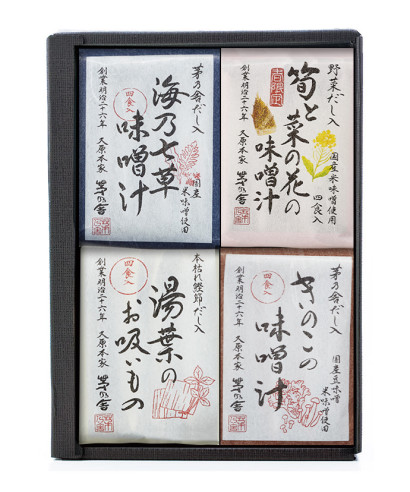 茅乃舎だし入
海乃七草
味噌汁
四食入
国産
米味噌使用
創業明治二十六年
久原本家
茅乃舎
野菜だし入
筍と
菜の花の
味噌汁
春限定
国産米味噌使用
四食入
創業明治二十六年
久原本家
茅乃舎
本枯れ鰹節だし入
湯葉の
お吸いもの
四食入
創業明治二十六年
久原本家
茅乃舎
茅乃舎だし入
きのこの
味噌汁
四食入
国産豆味噌
米味噌使用
創業明治二十六年
久原本家
茅乃舎